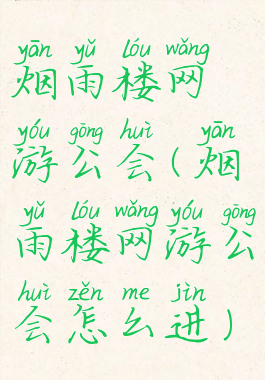 yān yǔ lóu wǎng
烟雨楼网
yóu gōng huì yān
游公会(烟
yǔ lóu wǎng yóu gōng
雨楼网游公
huì zěn me jìn
会怎么进)